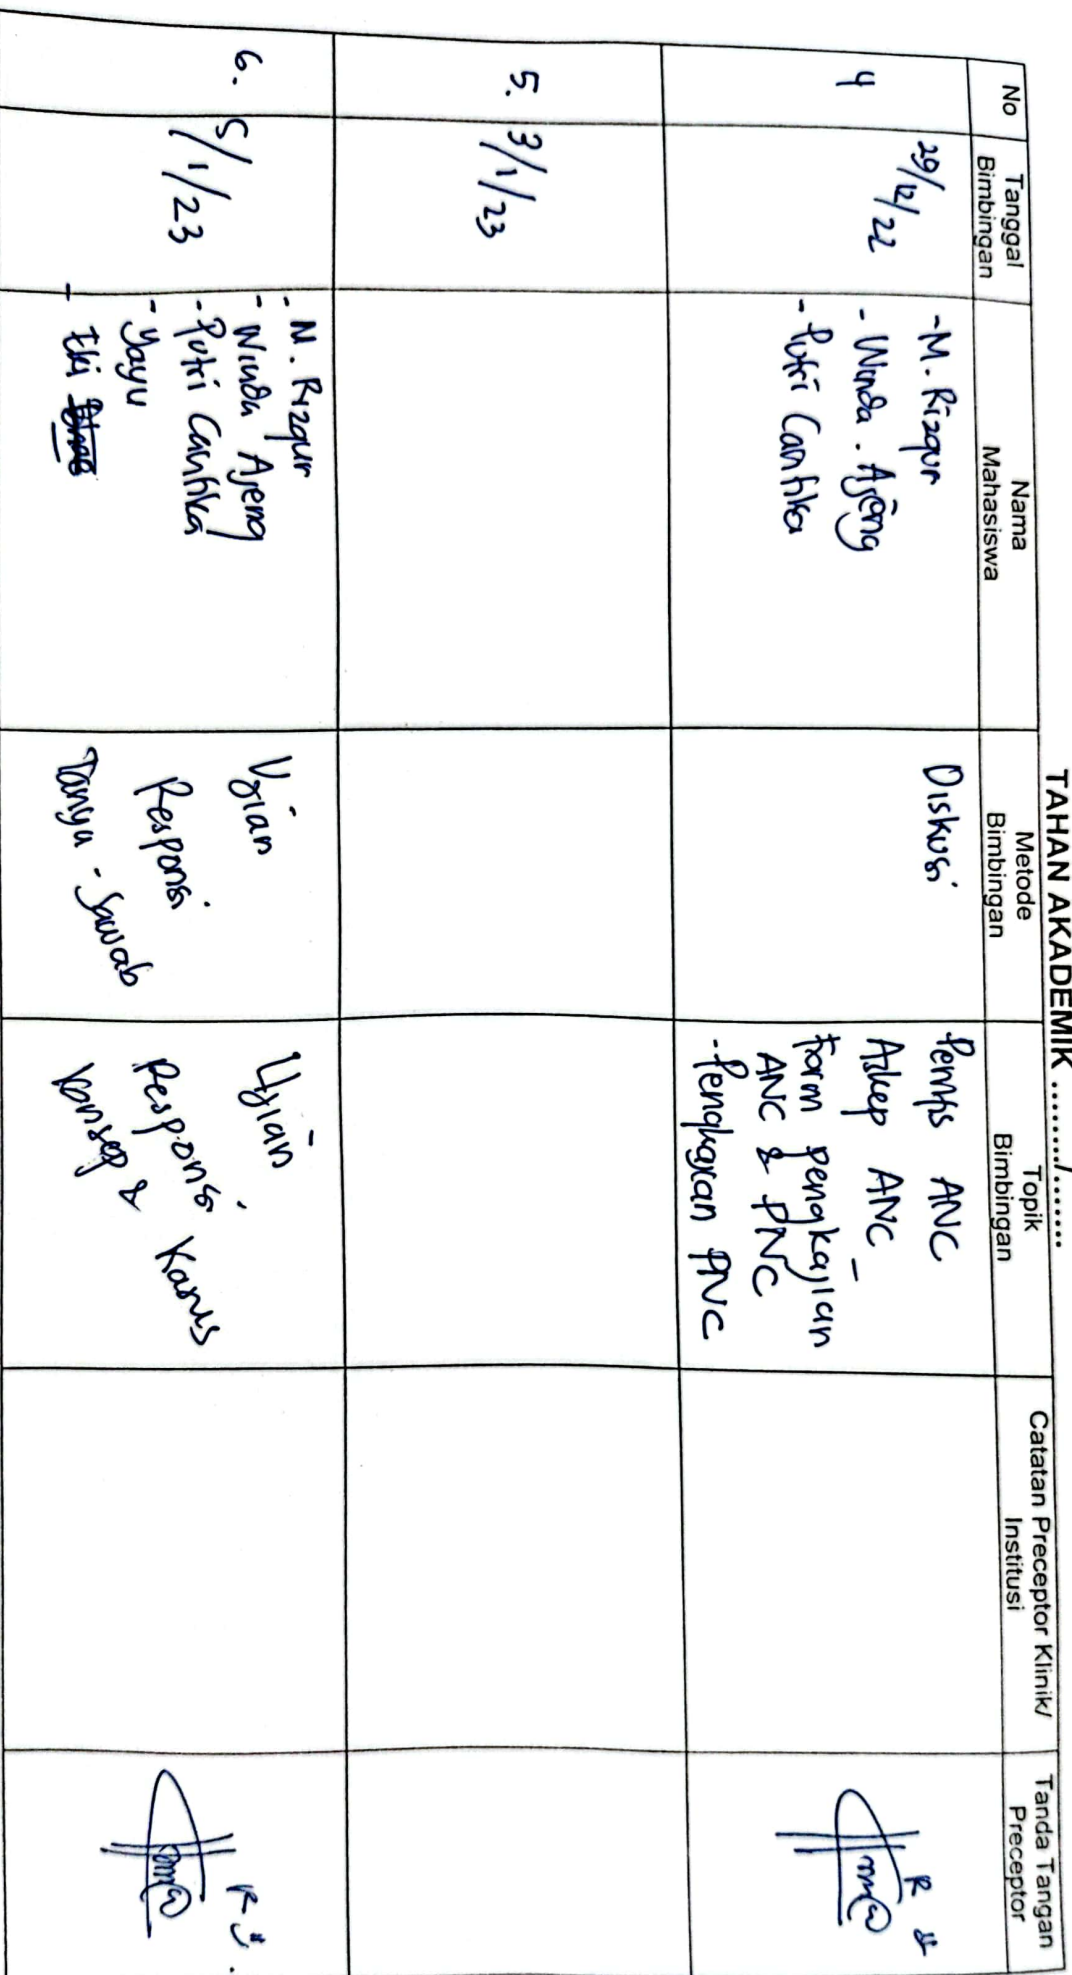 TAHAN AKADEMIK ........./........
No
Tanggal
Bimbingan
Nama
Mahasiswa
Metode
Bimbingan
Topik
Bimbingan
Catatan Preceptor Klinik/
Institusi
Tanda Tangan
Preceptor
4
29/12/22
- M. Rizqur
- Winda . Ajeng
- Putri Cantika
Diskusi
Pemfis ANC
Askep ANC
Form pengkajian
ANC & PNC
- Pengkajian PNC
5.
3/1/23
6.
5/1/23
- M. Rizqur
- Winda Ajeng
- Putri Cantika
- Yayu
- Eki
Ujian
Responsi
Tanya - Jawab
Ujian
Responsi
Konsep & Kasus